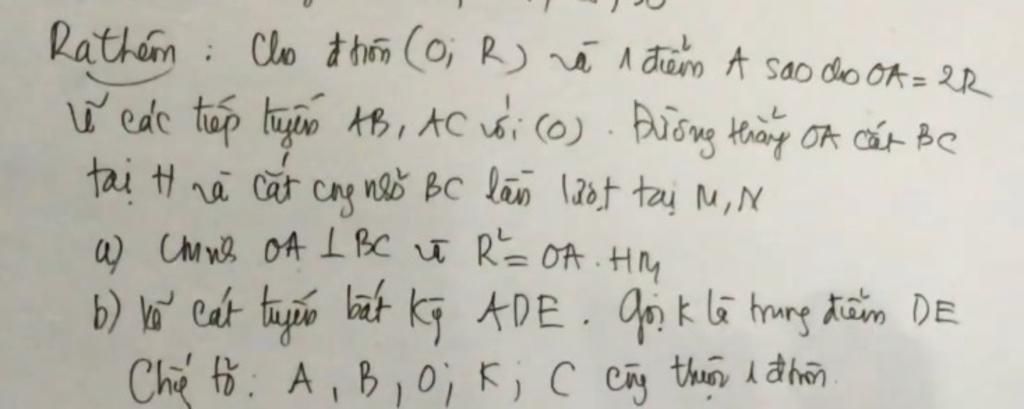 Ra thêm : Cho đ tròn (O; R) và 1 điểm A sao cho OA = 2R
Vẽ các tiếp tuyến AB, AC với (O). Đường thẳng OA cắt BC
tại H và cắt cung nhỏ BC lần lượt tại M, N
a) Cminh OA ⊥ BC và R² = OA . HM
b) Kẻ cát tuyến bất kỳ ADE. Gọi K là trung điểm DE
Chứng tỏ: A, B, O; K; C cùng thuộc 1 đ tròn.